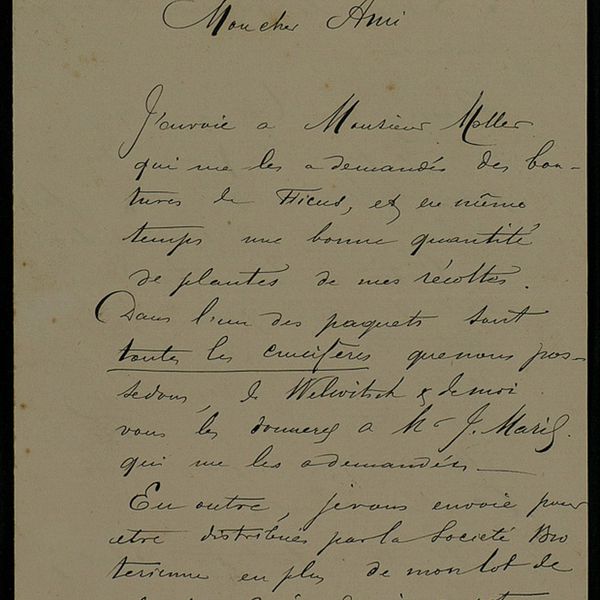 Mon cher Ami
J'envoie a Monsieur Moller
qui me les a demandés des bou-
tures de Ficus, et en même
temps une bonne quantité
de plantes de mes récoltes.
Dans l'un des paquets sont
toutes les crucifères que nous pos-
sedons, de Welwitsch & de moi
vous les donnerez a Mr J. Mariz.
qui me les a demandés.—
En outre, je vous envoie pour
etre distribués par la Societé Bro
terienne en plus de mon lot de